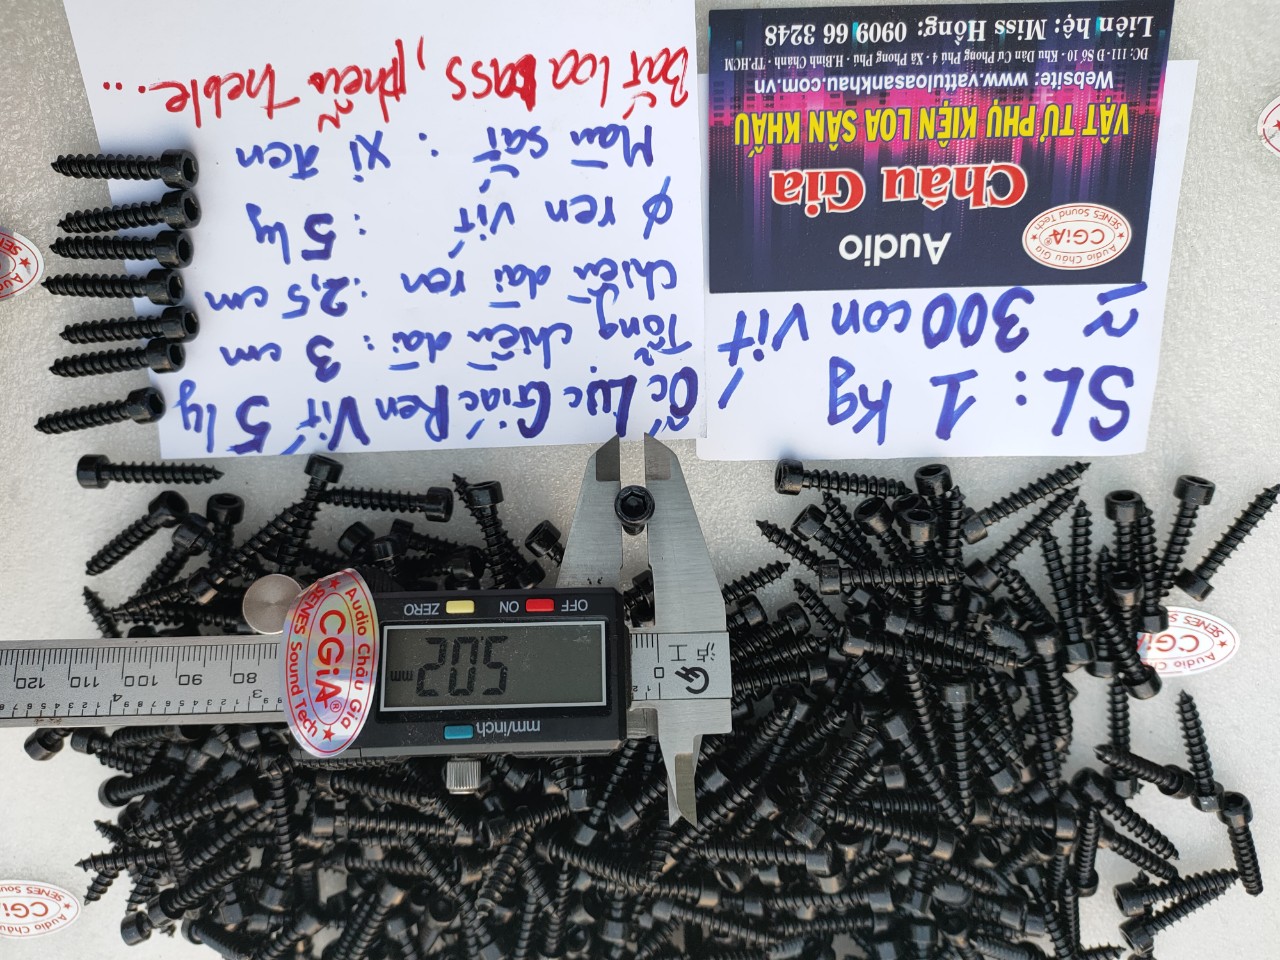 Ốc Lục Giác Ren Vít 5 ly
Tổng chiều dài : 3 cm
Chiều dài ren : 2,5 cm
Ø ren vít : 5 ly
Màu sắt : xi đen
Bắt loa bass, phễu treble...
SL : 1 kg /
≈ 300 con vít
Audio
CGiA®
Audio Châu Gia
SENES Sound Tech
Châu Gia
VẬT TƯ PHỤ KIỆN LOA SÂN KHẤU
Website: www.vattuloasankhau.com.vn
ĐC: 111 - Đ Số 10 - Khu Dân Cư Phong Phú 4 - Xã Phong Phú - H.Bình Chánh - TP.HCM
Liên hệ: Miss Hồng: 0909 66 3248
OFF ON ZERO
5.02 mm
mm/inch
Audio Châu Gia
CGiA®
SENES Sound Tech
0
80 90 100 110 120
3 4
CGiA
SENES Sound Tech
CGiA
SENES Soun
Audio Châu